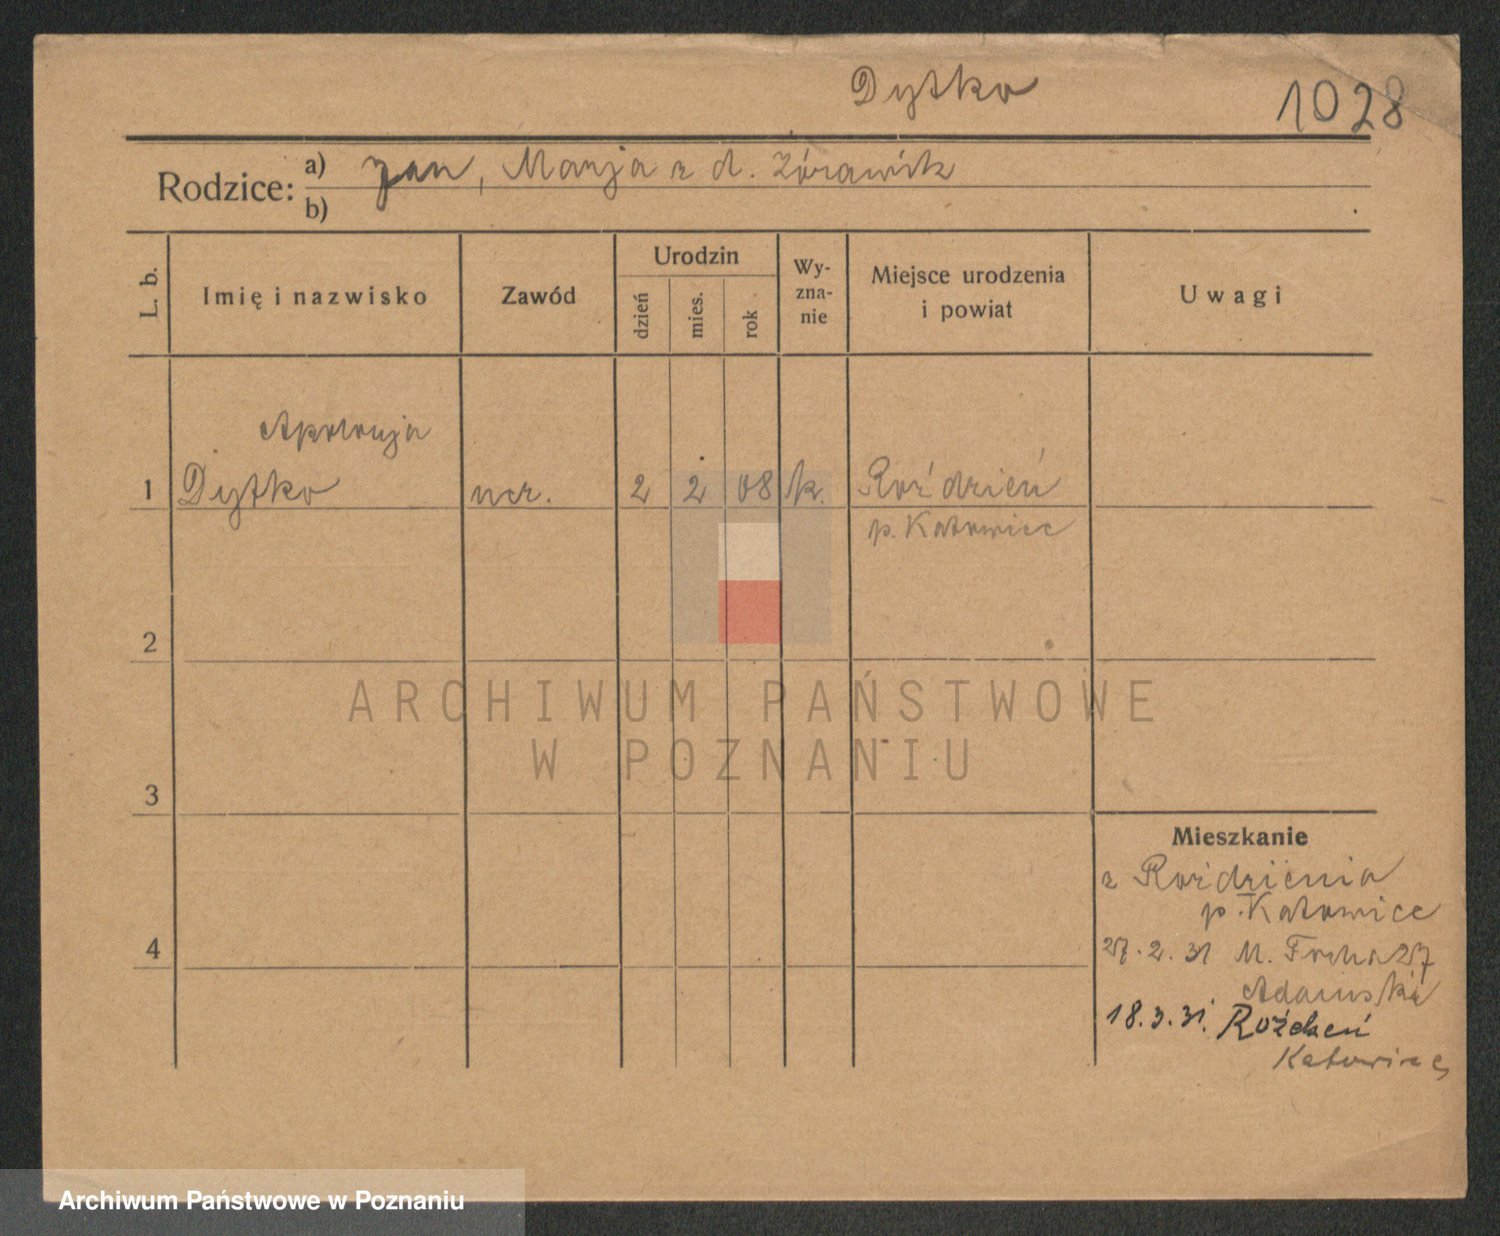 Dytko
1028
Rodzice:
a) Jan, Marja z d. Żórawik
b)
L. b.
Imię i nazwisko
Zawód
Urodzin
dzień
mies.
rok
Wy-
zna-
nie
Miejsce urodzenia
i powiat
Uwagi
1 Dytko ucz. 2 2 08 k. Roździeń
p. Katowice
2
3
4
Mieszkanie
z Roździenia
p. Katowice
27.2.31 M. Focha 27
Adamski
18.3.31. Roździeń
Katowice
ARCHIWUM PAŃSTWOWE
W POZNANIU
Archiwum Państwowe w Poznaniu